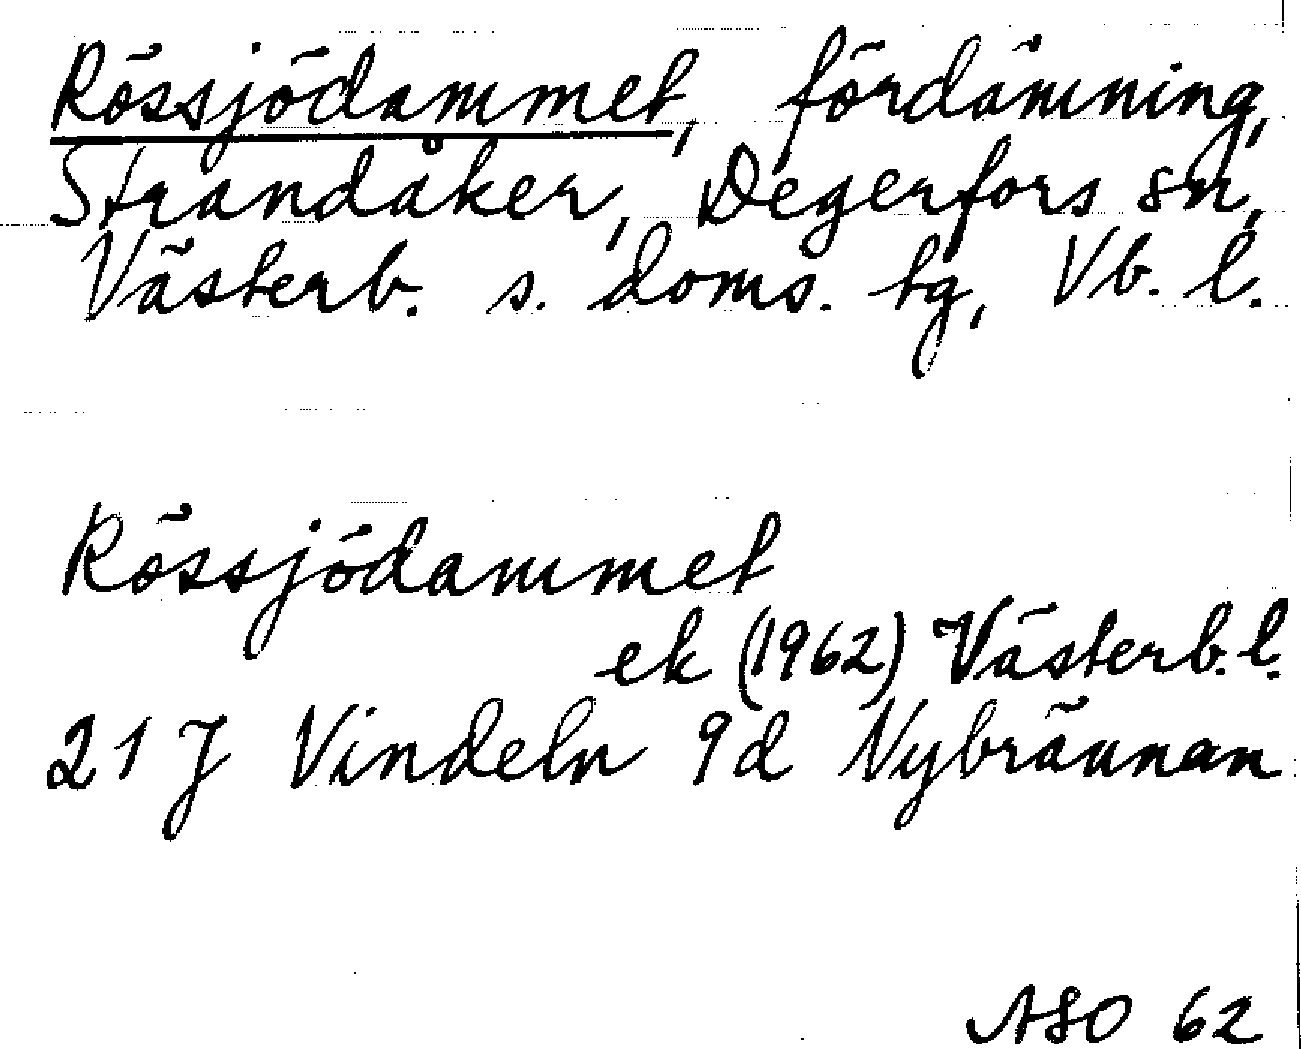 Rössjödammet, fördämning,
Strandåker, Degerfors sn,
Västerb. s. doms. tg, Vb. l.
Rössjödammet
ek (1962) Västerb. l.
21 J Vindeln 9d Nybrännan
ASO 62